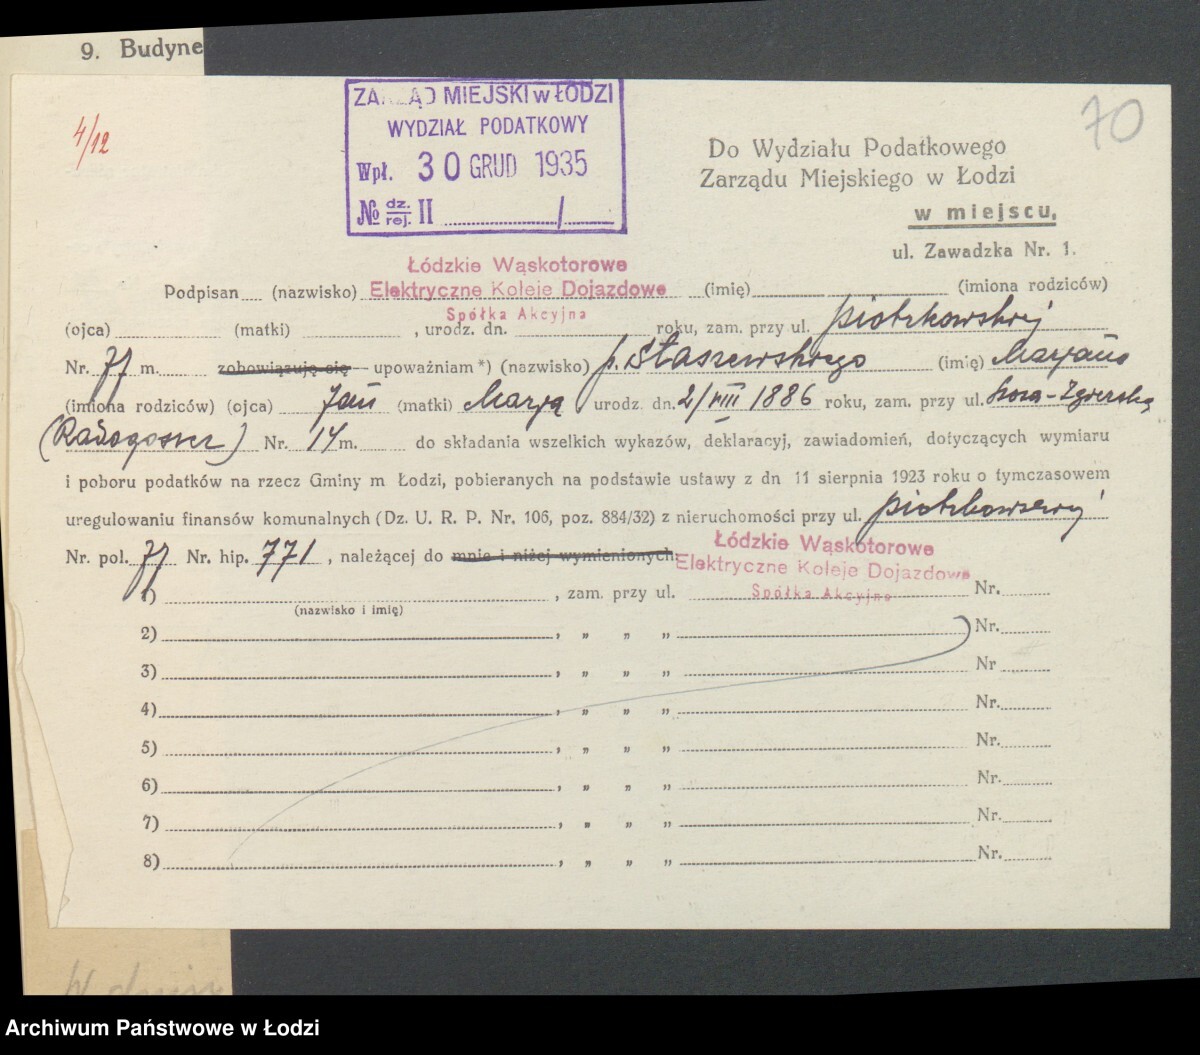 9. Budyne
4/12
70
ZARZĄD MIEJSKI w ŁODZI
WYDZIAŁ PODATKOWY
Wpł. 30 GRUD 1935
№ dz./rej. II ........ / ........
Do Wydziału Podatkowego
Zarządu Miejskiego w Łodzi
w miejscu,
ul. Zawadzka Nr. 1.
Łódzkie Wąskotorowe
Podpisan.... (nazwisko) Elektryczne Koleje Dojazdowe (imię) (imiona rodziców)
Spółka Akcyjna
(ojca) (matki) , urodz. dn. roku, zam. przy ul. Piotrkowskiej
Nr. 77 m. zobowiązuję się – upoważniam *) (nazwisko) p. Staszewskiego (imię) Marjana
(imiona rodziców) (ojca) Jan (matki) Marja, urodz. dn. 2/VIII 1886 roku, zam. przy ul. Szosa-Zgierska
(Radogoszcz) Nr. 14 m. do składania wszelkich wykazów, deklaracyj, zawiadomień, dotyczących wymiaru
i poboru podatków na rzecz Gminy m Łodzi, pobieranych na podstawie ustawy z dn 11 sierpnia 1923 roku o tymczasowem
uregulowaniu finansów komunalnych (Dz. U. R. P. Nr. 106, poz. 884/32) z nieruchomości przy ul. Piotrkowskiej
Łódzkie Wąskotorowe
Nr. pol. 77 Nr. hip. 771, należącej do mnie i niżej wymienionych:
Elektryczne Koleje Dojazdowe
Spółka Akcyjna
1) , zam. przy ul. Nr.
(nazwisko i imię)
2) , „ „ „ Nr.
3) , „ „ „ Nr
4) , „ „ „ Nr.
5) , „ „ „ Nr.
6) , „ „ „ Nr.
7) , „ „ „ Nr.
8) , „ „ „ Nr.
Archiwum Państwowe w Łodzi